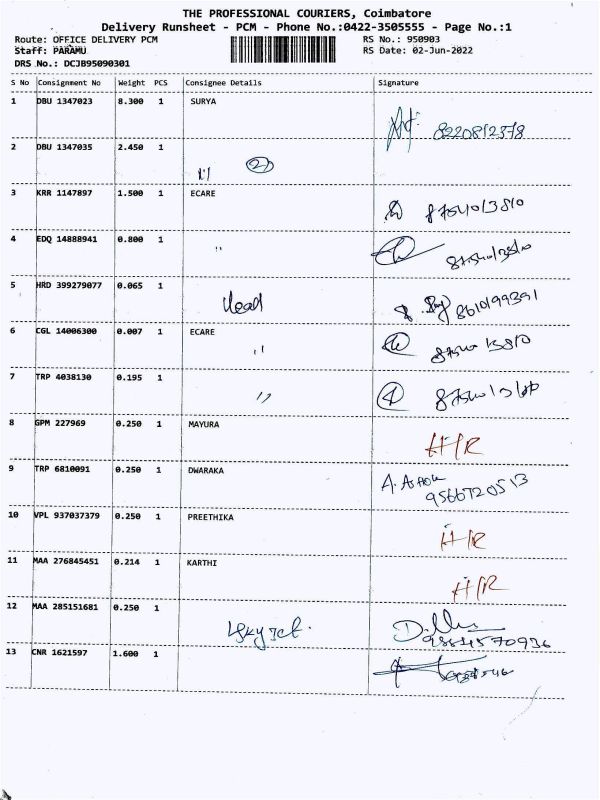 THE PROFESSIONAL COURIERS, Coimbatore
Delivery Runsheet - PCM - Phone No.:0422-3505555 - Page No.:1
Route: OFFICE DELIVERY PCM RS No.: 950903
Staff: PARAMU RS Date: 02-Jun-2022
DRS No.: DCJB95090301
S No Consignment No Weight PCS Consignee Details Signature
1 DBU 1347023 8.300 1 SURYA
8220812378
2 DBU 1347035 2.450 1
" (2)
3 KRR 1147897 1.500 1 ECARE
8754013810
4 EDQ 14888941 0.800 1 "
5 HRD 399279077 0.065 1
8610199391
6 CGL 14006300 0.007 1 ECARE
"
7 TRP 4038130 0.195 1
"
8 GPM 227969 0.250 1 MAYURA
H/R
9 TRP 6810091 0.250 1 DWARAKA A. Ashok
9566720513
10 VPL 937037379 0.250 1 PREETHIKA
H/R
11 MAA 276845451 0.214 1 KARTHI
H/R
12 MAA 285151681 0.250 1
Skyjet.
13 CNR 1621597 1.600 1